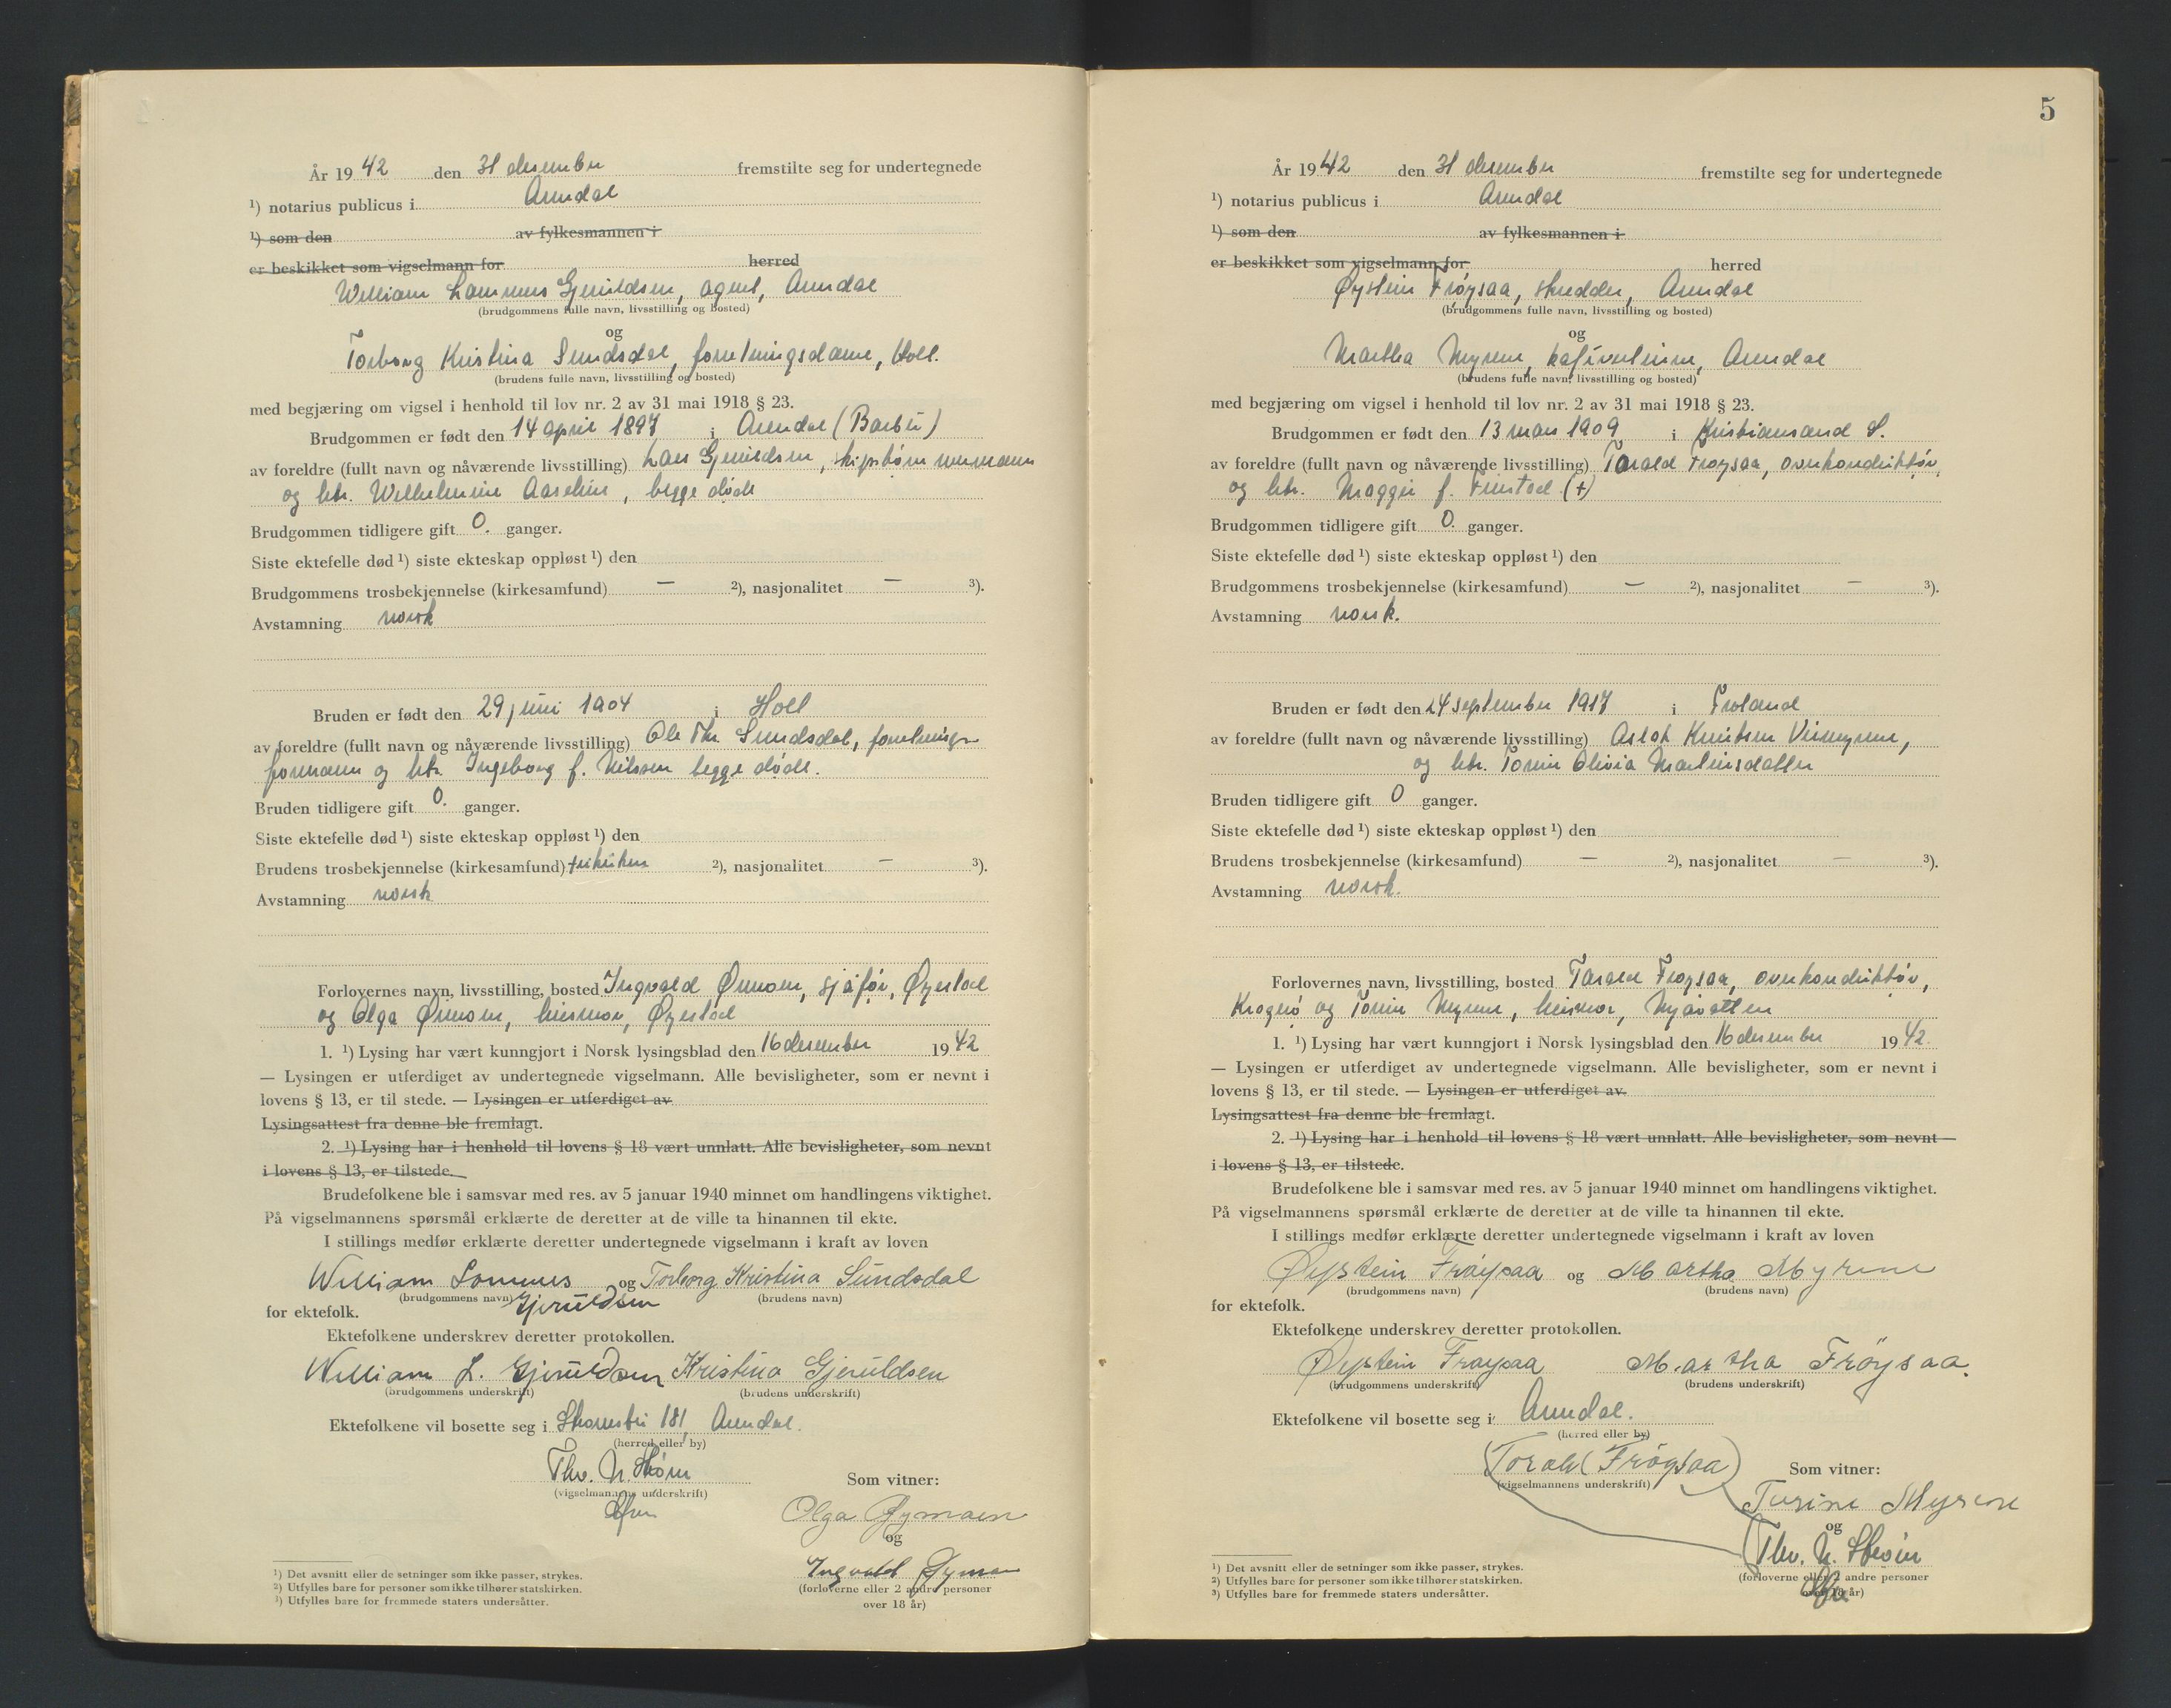 År 1942 den 31 desember fremstilte seg for undertegnede
¹) notarius publicus i Arendal
¹) som den av fylkesmannen i
er beskikket som vigselmann for herred
William Lammers Gjeruldsen, agent, Arendal
(brudgommens fulle navn, livsstilling og bosted)
og
Torborg Kristina Sundsdal, forretningsdame, Holt.
(brudens fulle navn, livsstilling og bosted)
med begjæring om vigsel i henhold til lov nr. 2 av 31 mai 1918 § 23.
Brudgommen er født den 14 april 1897 i Arendal (Barbu)
av foreldre (fullt navn og nåværende livsstilling) Lars Gjeruldsen,
og htr. Wilhelmine Aaseline, begge døde
Brudgommen tidligere gift 0. ganger.
Siste ektefelle død ¹) siste ekteskap oppløst ¹) den
Brudgommens trosbekjennelse (kirkesamfund) — ²), nasjonalitet — ³).
Avstamning norsk
Bruden er født den 29 juni 1904 i Holt
av foreldre (fullt navn og nåværende livsstilling) Ole Thr. Sundsdal, forretnings-
formann og htr. Ingeborg f. Nilssen begge døde.
Bruden tidligere gift 0. ganger.
Siste ektefelle død ¹) siste ekteskap oppløst ¹) den
Brudens trosbekjennelse (kirkesamfund) frikirken ²), nasjonalitet — ³).
Avstamning norsk
Forlovernes navn, livsstilling, bosted Ingvald Øymoen, sjåfør, Øyestad
og Olga Øymoen, husmor, Øyestad
1. ¹) Lysing har vært kunngjort i Norsk lysingsblad den 16 desember 1942
— Lysingen er utferdiget av undertegnede vigselmann. Alle bevisligheter, som er nevnt i
lovens § 13, er til stede. — Lysingen er utferdiget av
Lysingsattest fra denne ble fremlagt.
2. ¹) Lysing har i henhold til lovens § 18 vært unnlatt. Alle bevisligheter, som nevnt
i lovens § 13, er tilstede.
Brudefolkene ble i samsvar med res. av 5 januar 1940 minnet om handlingens viktighet.
På vigselmannens spørsmål erklærte de deretter at de ville ta hinannen til ekte.
I stillings medfør erklærte deretter undertegnede vigselmann i kraft av loven
William Lammers og Torborg Kristina Sundsdal
(brudgommens navn) Gjeruldsen (brudens navn)
for ektefolk.
Ektefolkene underskrev deretter protokollen.
William L. Gjeruldsen Kristina Gjeruldsen
(brudgommens underskrift) (brudens underskrift)
Ektefolkene vil bosette seg i Strømsbu 181, Arendal.
(herred eller by)
Thv. N. Strøm
(vigselmannens underskrift) Som vitner:
Olga Øymoen
og
Ingvald Øymoen
(forloverne eller 2 andre personer
over 18 år)
¹) Det avsnitt eller de setninger som ikke passer, strykes.
²) Utfylles bare for personer som ikke tilhører statskirken.
³) Utfylles bare for fremmede staters undersåtter.
5
År 1942 den 31 desember fremstilte seg for undertegnede
¹) notarius publicus i Arendal
¹) som den av fylkesmannen i
er beskikket som vigselmann for herred
Øystein Frøysaa, skredder, Arendal
(brudgommens fulle navn, livsstilling og bosted)
og
Martha Myrene, kafévertinne, Arendal
(brudens fulle navn, livsstilling og bosted)
med begjæring om vigsel i henhold til lov nr. 2 av 31 mai 1918 § 23.
Brudgommen er født den 13 mars 1909 i Kristiansand S.
av foreldre (fullt navn og nåværende livsstilling) Torald Frøysaa, overkonduktør,
og htr. Maggie f. (+)
Brudgommen tidligere gift 0. ganger.
Siste ektefelle død ¹) siste ekteskap oppløst ¹) den
Brudgommens trosbekjennelse (kirkesamfund) — ²), nasjonalitet — ³).
Avstamning norsk.
Bruden er født den 24 september 1917 i Froland
av foreldre (fullt navn og nåværende livsstilling) Aslak Knutsen
og htr. Torine Olivia Martinsdatter
Bruden tidligere gift 0 ganger.
Siste ektefelle død ¹) siste ekteskap oppløst ¹) den
Brudens trosbekjennelse (kirkesamfund) — ²), nasjonalitet — ³).
Avstamning norsk.
Forlovernes navn, livsstilling, bosted Torald Frøysaa, overkonduktør,
Kragerø og Torine Myrene, husmor,
1. ¹) Lysing har vært kunngjort i Norsk lysingsblad den 16 desember 1942.
— Lysingen er utferdiget av undertegnede vigselmann. Alle bevisligheter, som er nevnt i
lovens § 13, er til stede. — Lysingen er utferdiget av
Lysingsattest fra denne ble fremlagt.
2. ¹) Lysing har i henhold til lovens § 18 vært unnlatt. Alle bevisligheter, som nevnt
i lovens § 13, er tilstede.
Brudefolkene ble i samsvar med res. av 5 januar 1940 minnet om handlingens viktighet.
På vigselmannens spørsmål erklærte de deretter at de ville ta hinannen til ekte.
I stillings medfør erklærte deretter undertegnede vigselmann i kraft av loven
Øystein Frøysaa og Martha Myrene
(brudgommens navn) (brudens navn)
for ektefolk.
Ektefolkene underskrev deretter protokollen.
Øystein Frøysaa Martha Frøysaa.
(brudgommens underskrift) (brudens underskrift)
Ektefolkene vil bosette seg i Arendal.
(herred eller by)
Torald Frøysaa Som vitner:
(vigselmannens underskrift)
Torine Myrene
og
Thv. N. Strøm
(forloverne eller 2 andre personer
over 18 år)
¹) Det avsnitt eller de setninger som ikke passer, strykes.
²) Utfylles bare for personer som ikke tilhører statskirken.
³) Utfylles bare for fremmede staters undersåtter.